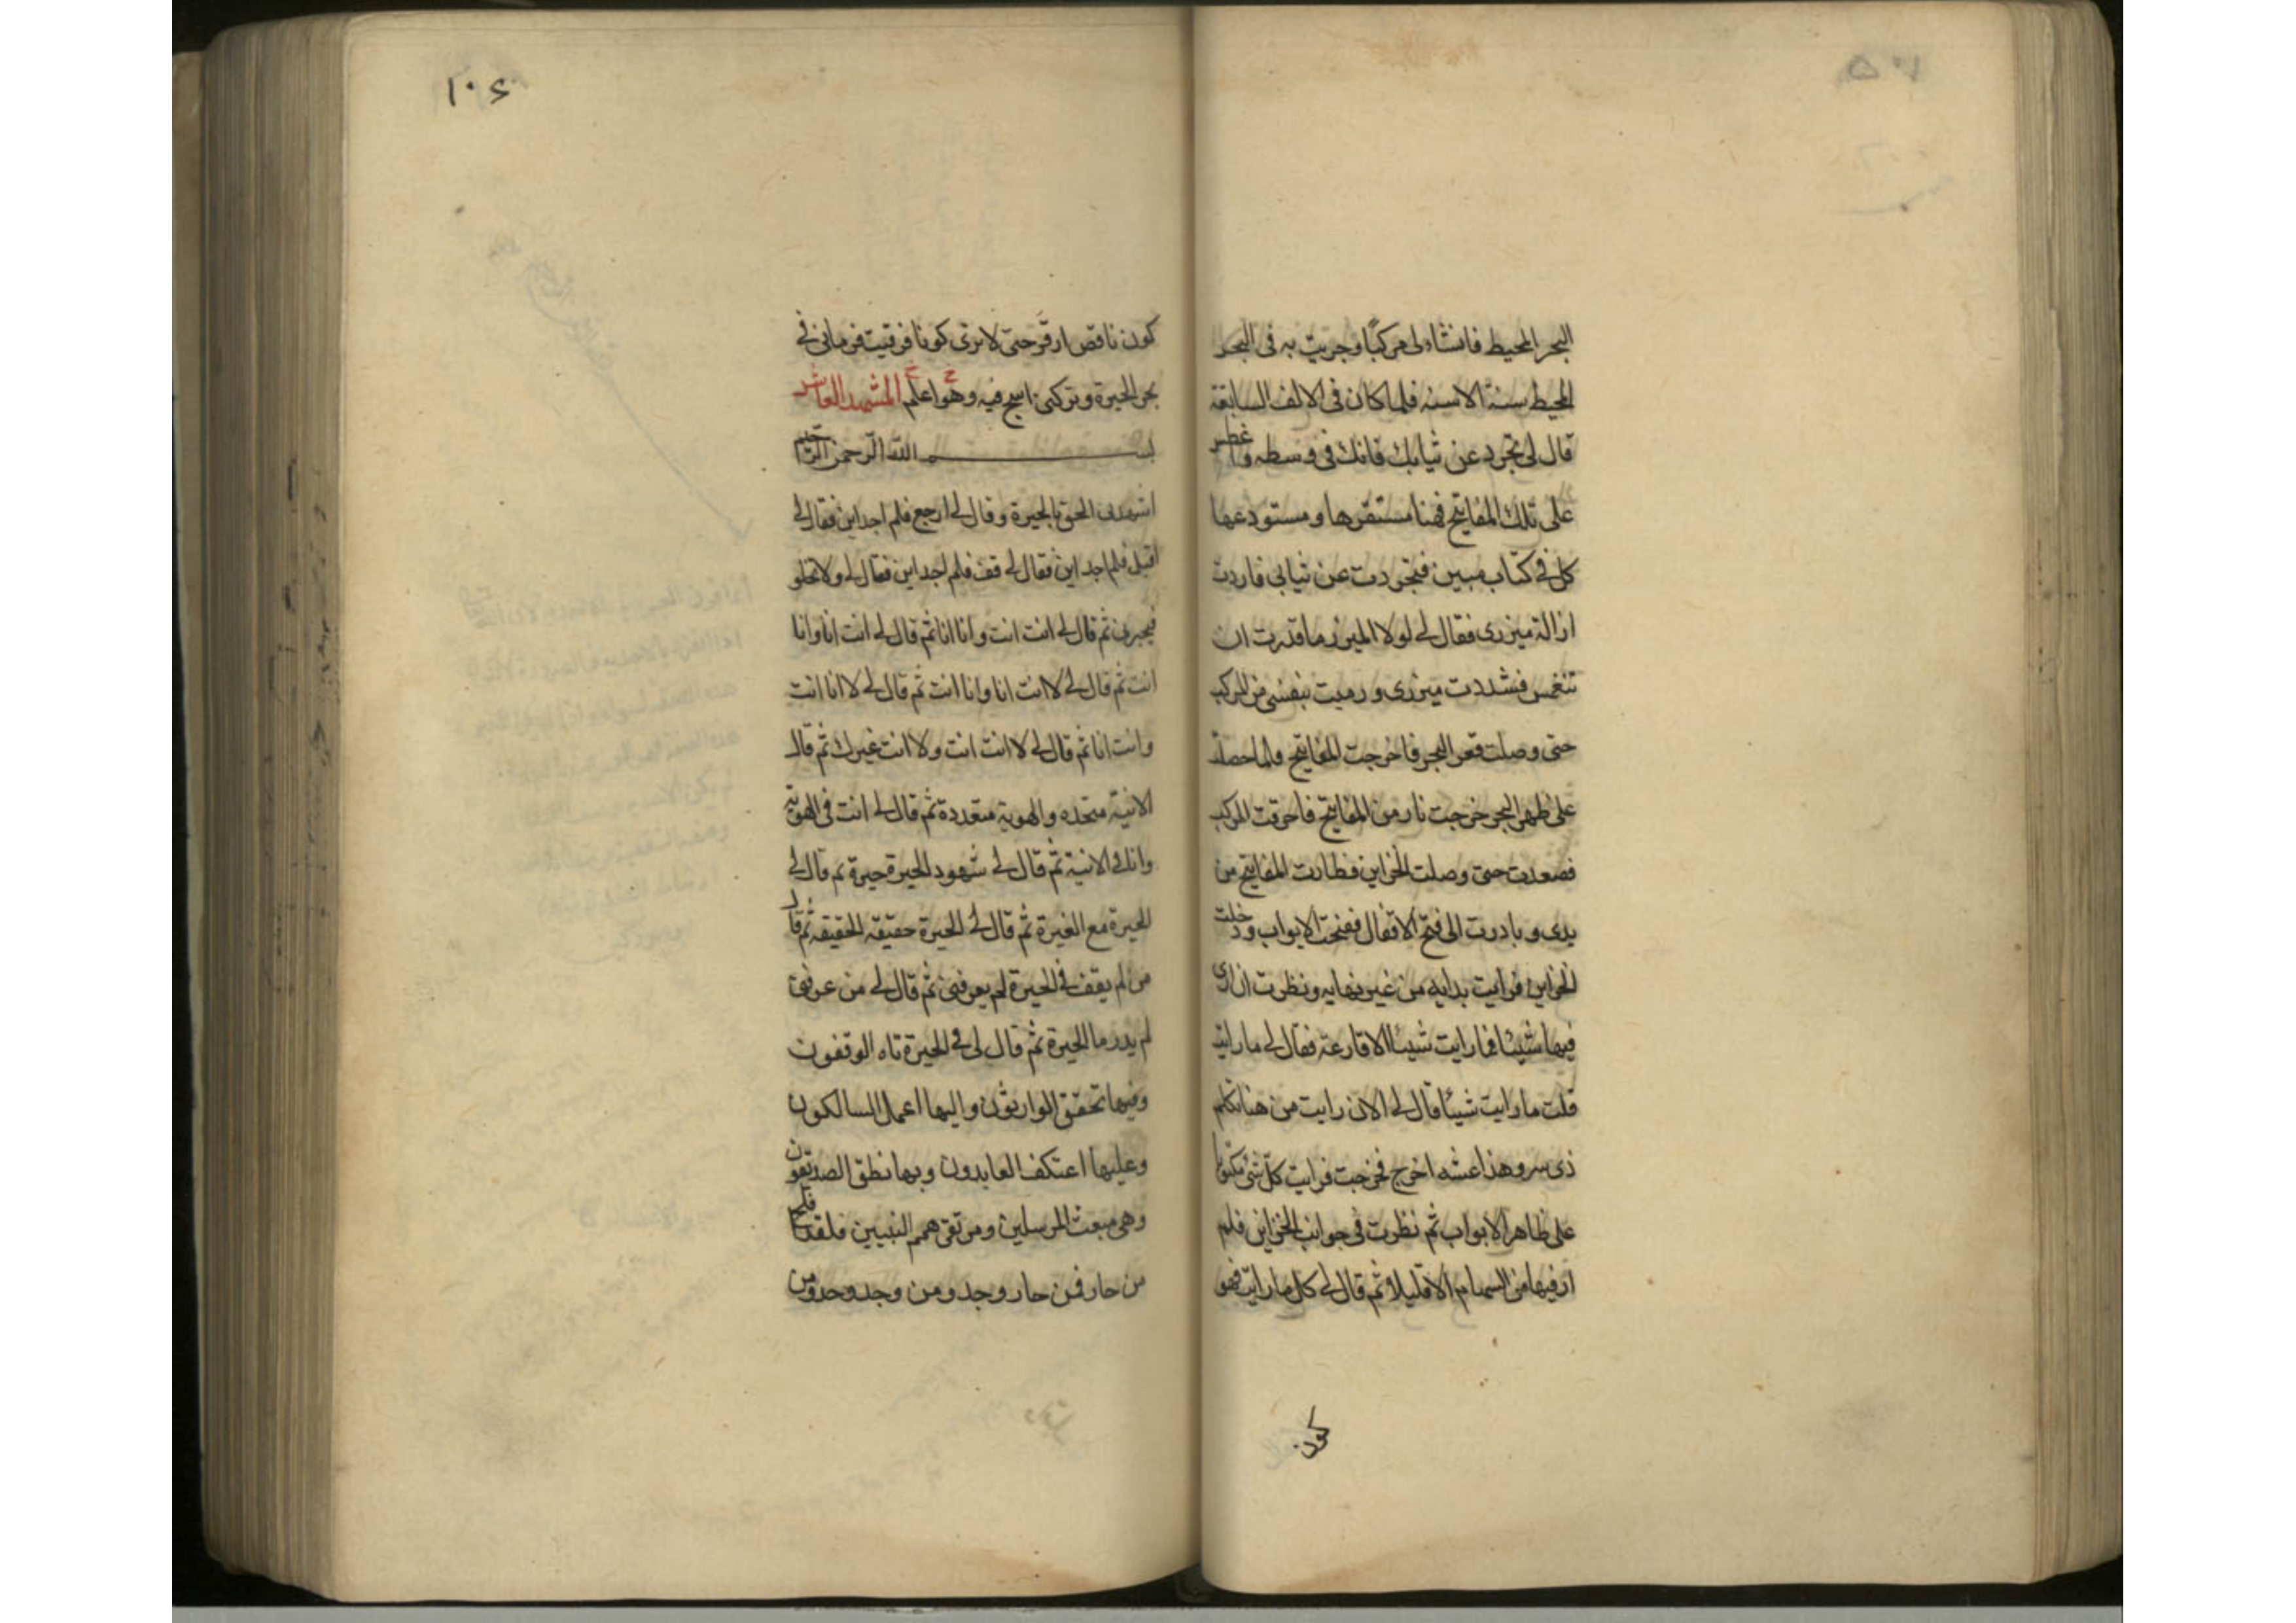 البحر المحيط فانشاء لى مركبًا وجريت به فى البحر
المحيط سنة الاسنه فلما كان فى الالف السابقة
قال لى تجرد عن ثيابك فانك فى وسطه وا غطس
على تلك المفاتيح فهنا مستقرها ومستودعها
كل فى كتاب مبين فتجردت عن ثيابى فاردت
ازالة ميزرى فقال لى لولا الميزر ما قدرت ان
تنغمس فشددت ميزرى ورميت بنفسى من المركب
حتى وصلت قعر البحر فاخرجت المفاتيح فلما حصلت
على ظهر البحر خرجت نار من المفاتيح فاحرقت المركب
فصعدت حتى وصلت الخزاين فطارت المفاتيح من
يدى وبادرت الى فتح الاقفال ففتحت الابواب ودخلت
الخزاين فرايت بدايه من غير نهايه ونظرت ان ارى
فيها شيئا فما رايت شيئا الا قارعة فقال لى ما رايت
قلت ما رايت شيئا قال لى الان رايت من هنا تكلم
ذى سر وهذا عشه اخرج فخرجت فرايت كل شئ مكتوبا
على ظاهر الابواب ثم نظرت فى جوانب الخزاين فلم
ار فيها من السهام الا قليلا ثم قال لى كل ما رايت فهو
كون
١٠٦
كون ناقص ارقَ حتى لا ترى كونا فرقيت فرمانى فى
بحر الحيرة وتركنى اسبح فيه وهو اعلم المشهد العاشر
بسم الله الرحمن الرحيم
اشهدنى الحق بالحيرة وقال لى ارجع فلم اجد اين فقال لى
اقبل فلم اجد اين فقال لى قف فلم اجد اين فقال لى ولا تخلو
فحيرنى ثم قال لى انت انت وانا انا ثم قال لى انت انا وانا
انت ثم قال لى لا انت انا وانا انت ثم قال لى لا انا انت
وانت انا ثم قال لى لا انت انت ولا انت غيرك ثم قال
الانية متحده والهوية متعددة ثم قال لى انت فى الهوية
وانك فى الانية ثم قال لى شهود الحيرة حيرة ثم قال لى
الحيرة مع الغيرة ثم قال لى الحيرة حقيقه الحقيقه ثم قال
من لم يقف فى الحيرة لم يعرفنى ثم قال لى من عرفنى
لم يدر ما الحيرة ثم قال لى فى الحيرة تاه الوقفون
وفيها تحقق الوارثون واليها اعمل السالكون
وعليها اعتكف العابدون وبها نطق الصديقون
وهى مبعث المرسلين ومرتقى همم النبيين فلقد افلح
من حار فمن حار وجد ومن وجد وحد ومن